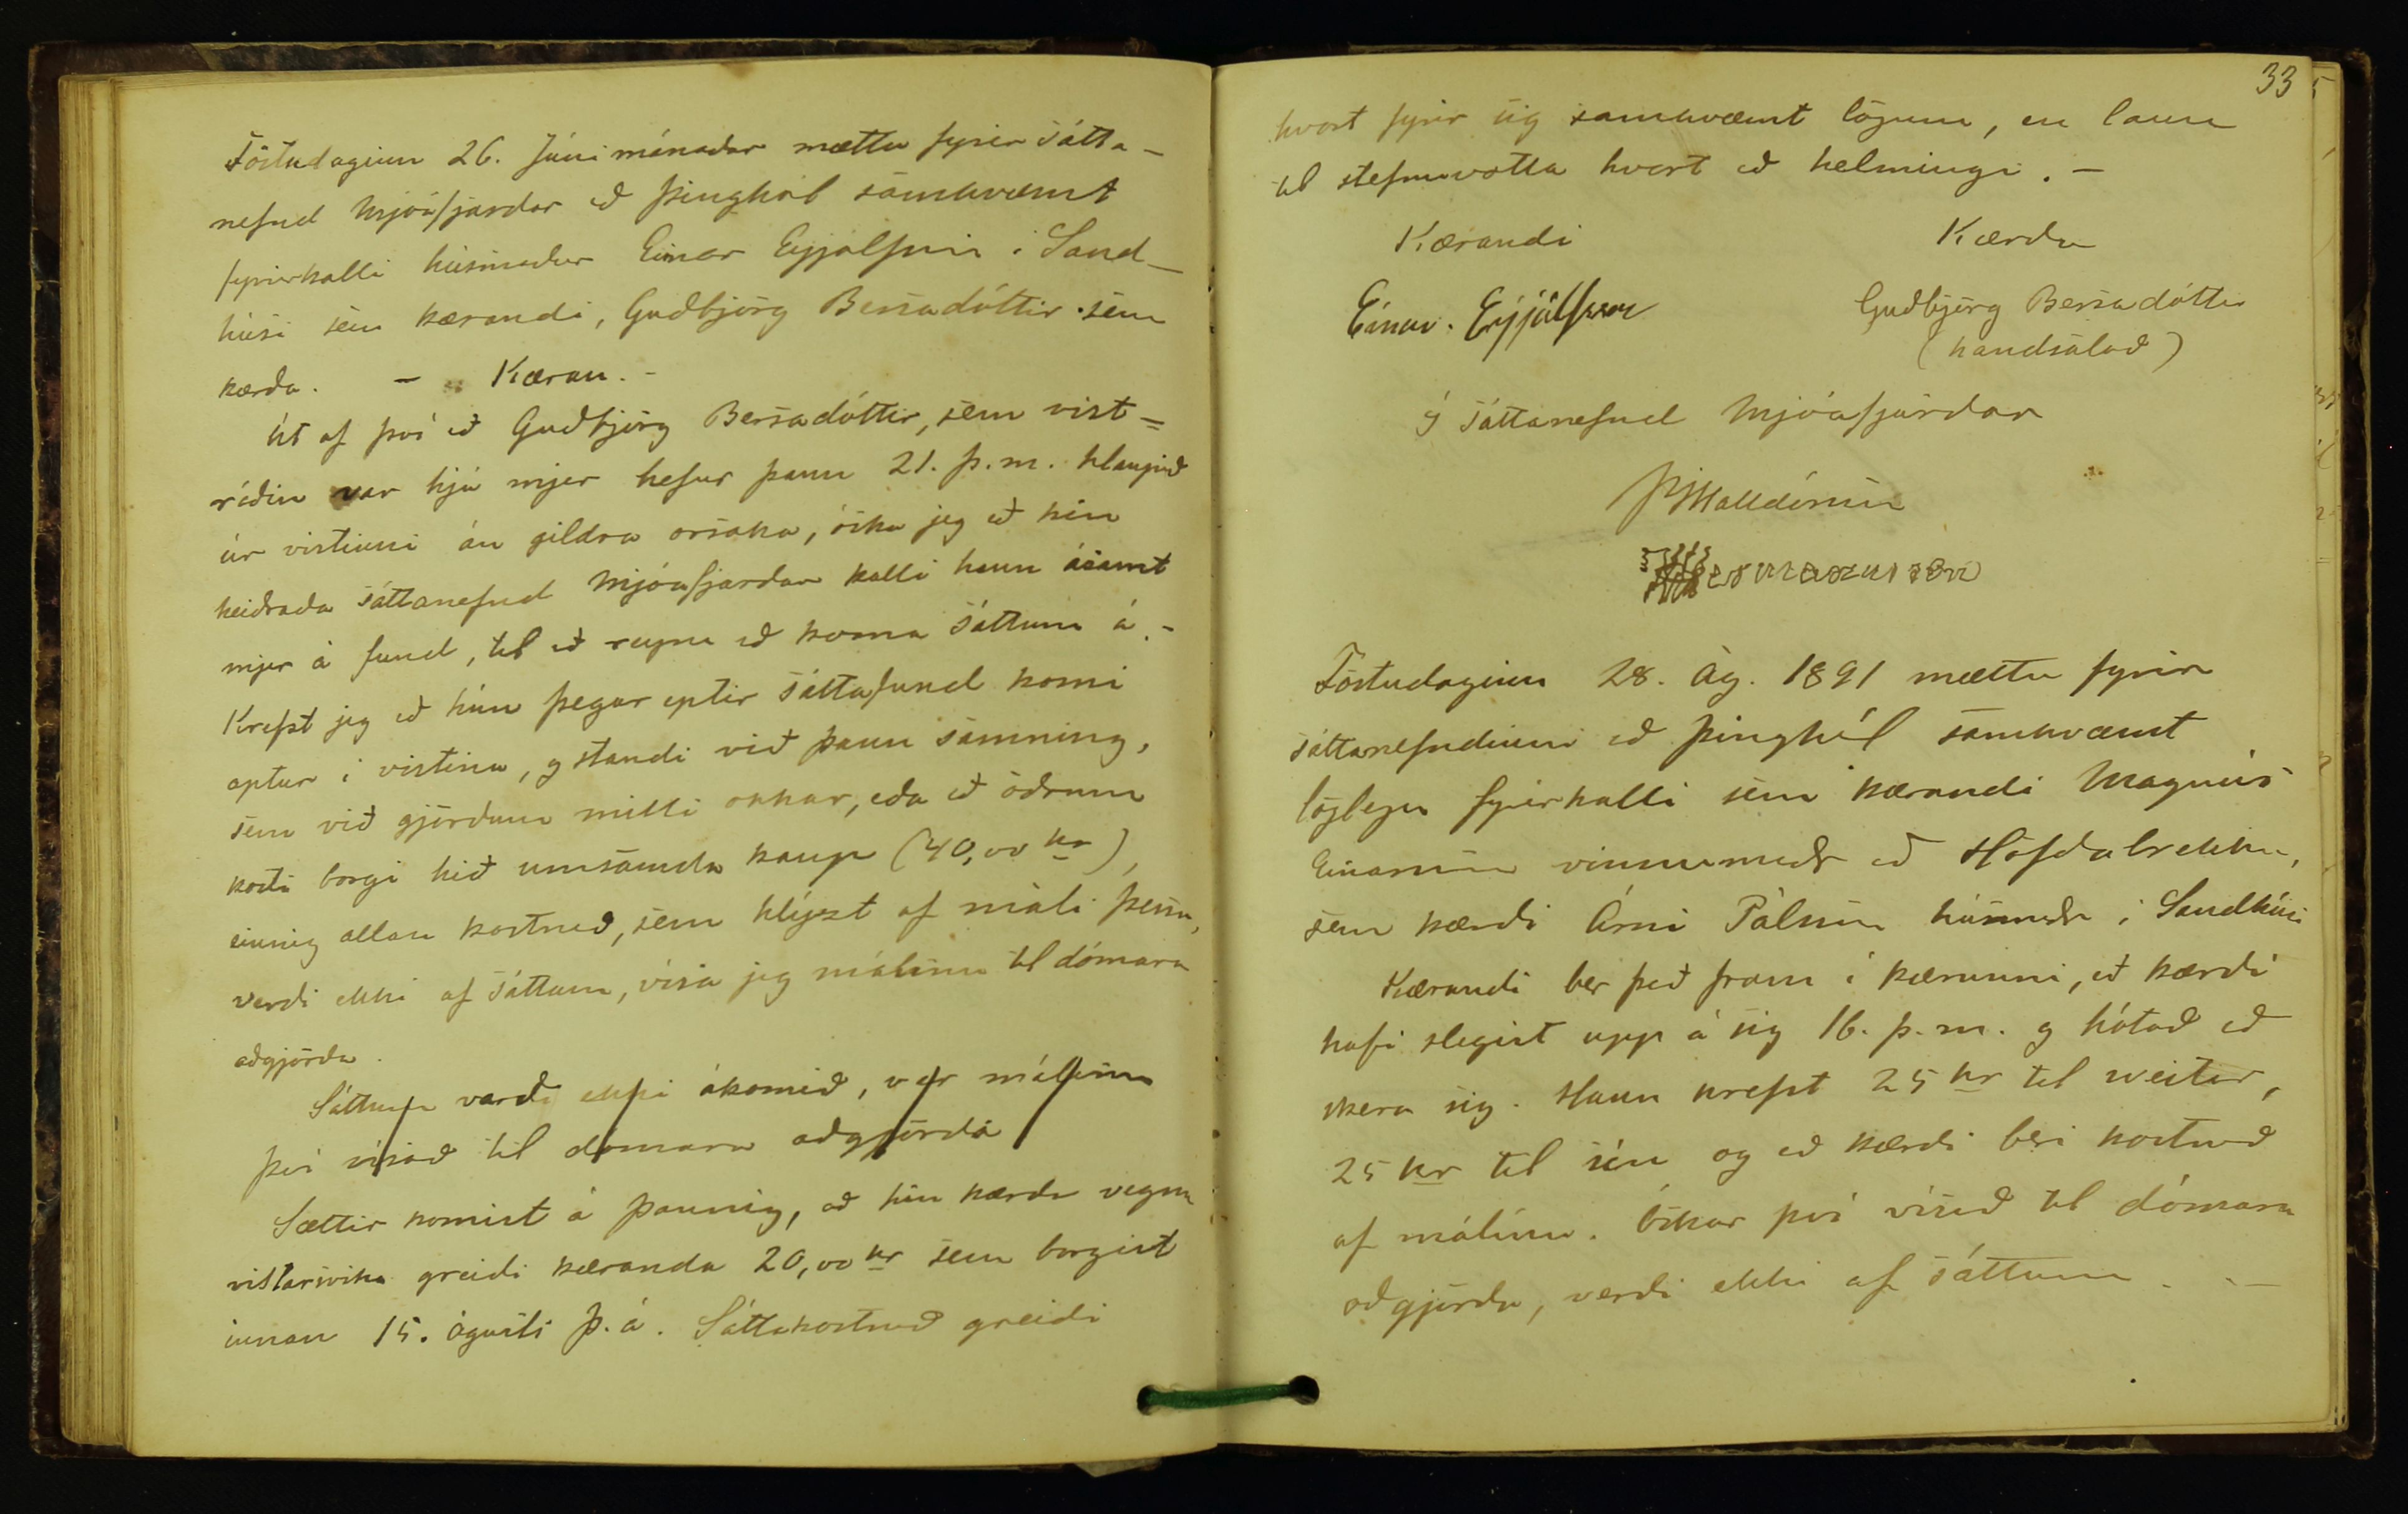 Föstudaginn 26. Júní mánaðar mættu fyrir sátta-
nefnd Mjóafjarðar að Þinghól samkvæmt
fyrirkalli húsmaður Einar Eyjólfsson í Sand-
húsi sem kærandi, Guðbjörg Bessadóttir sem
kærða. – Kæran. –
Út af því að Guðbjörg Bessadóttir, sem vist=
ráðin var hjá mjer hefur þann 21. þ.m. hlaupið
úr vistinni án gildra orsaka, óska jeg að hin
heiðraða sáttanefnd Mjóafjarðar kalli hana ásamt
mjer á fund, til að reyna að koma sáttum á. –
Krefst jeg að hún þegar eptir sáttafund komi
aptur í vistina, og standi við þann samning,
sem við gjörðum milli okkar, eða að öðrum
kosti borgi hið umsamda kaup (40,00 kr),
einnig allan kostnað, sem hlýzt af máli þessu,
verði ekki af sáttum, vísa jeg málinu til dómara
aðgjörða.
Sáttum varð ekki ákomið, var málinu
því vísað til dómara aðgjörða
Sættir komist á þannig, að hin kærða vegna
vistarsvika greiði kæranda 20,00 kr sem borgist
innan 15. ágústs þ.á. Sáttakostnað greiði
33
hvort fyrir sig samkvæmt lögum, en laun
til stefnuvotta hvort að helmingi. –
Kærandi Kærða
Einar Eyjólfsson Guðbjörg Bessadóttir
(handsalað)
Í sáttanefnd Mjóafjarðar
Halldórsson
Hermannsson
Föstudaginn 28. Ág. 1891 mættu fyrir
sáttanefndinni að Þinghól samkvæmt
löglegu fyrirkalli sem kærandi Magnús
Einarsson vinnumaðr að Höfðabrekku,
sem kærði Árni Pálsson húsmaðr í Sandhúsi
Kærandi ber það fram í kærunni, að kærði
hafi slegist upp á sig 16. þ.m. og hótað að
skera sig. Hann krefst 25 kr til sveitar,
25 kr til sín og að kærði beri kostnað
af málinu. Óskar því vísað til dómara
aðgjörða, verði ekki af sáttum. –